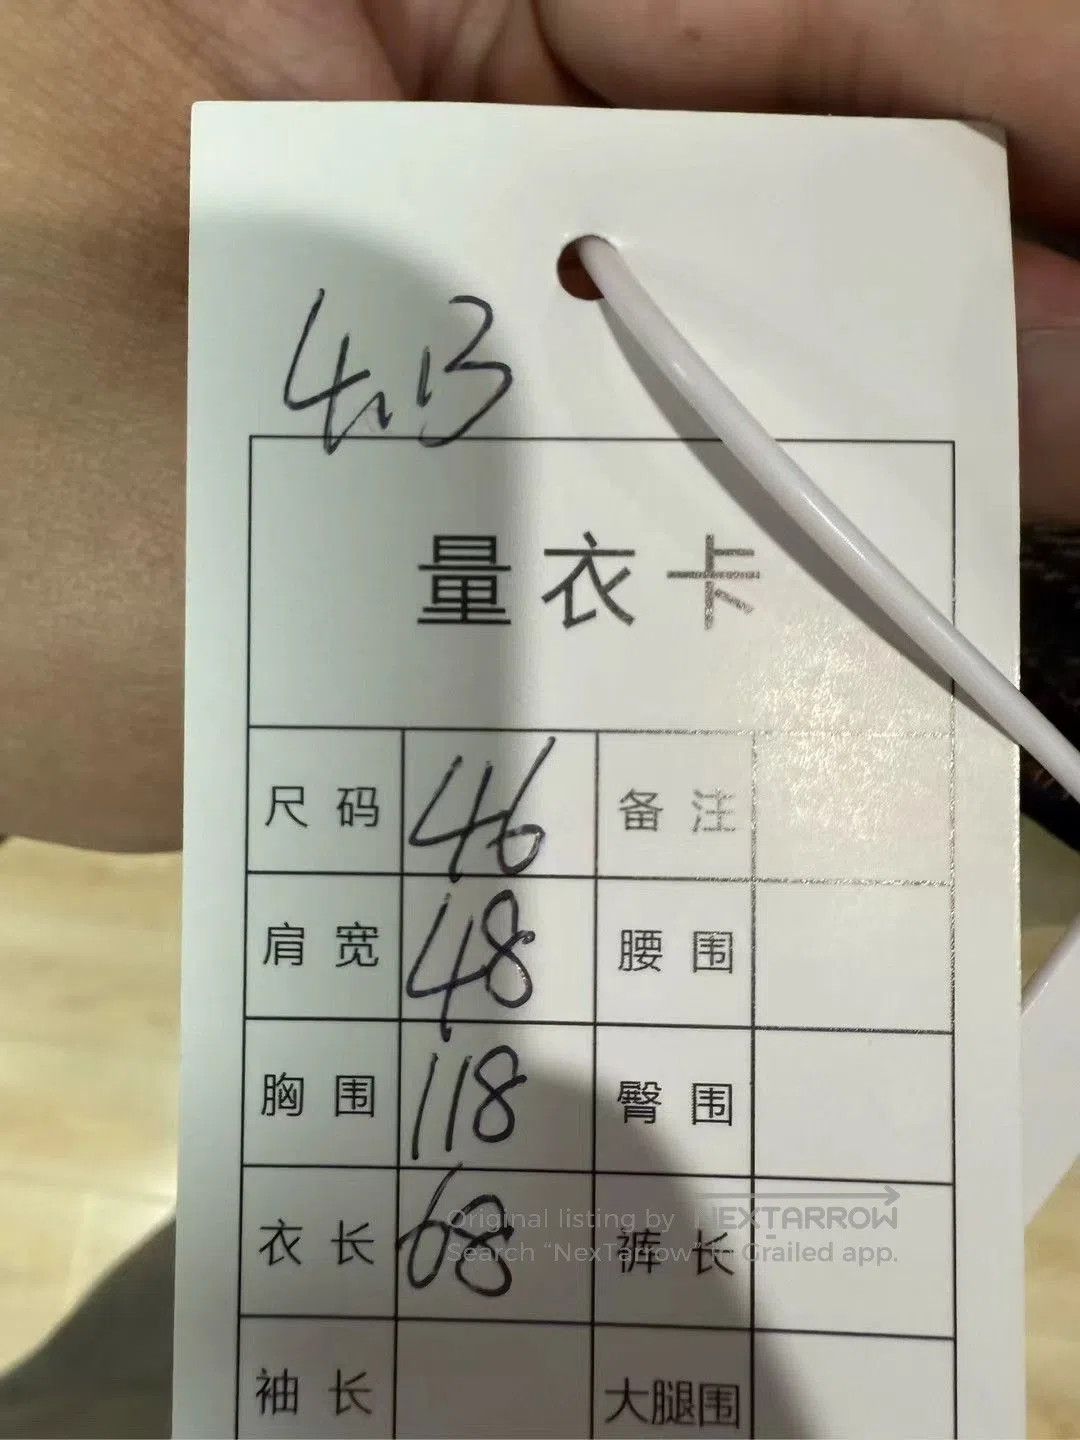 4.13
量衣卡
尺码 46 备注
肩宽 48 腰围
胸围 118 臀围
衣长 68 裤长
Original listing by NEXTARROW
Search “NexTarrow” in Grailed app.
袖长 大腿围